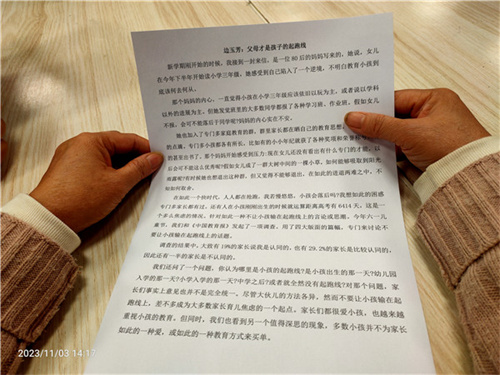 边玉芳：父母才是孩子的起跑线
新学期刚开始的时候，我接到一封来信，是一位80后的妈妈写来的，她说，女儿
在今年下半年开始读小学三年级，她感受到自己陷入了一个逆境，不明白教育小孩到
底该何去何从。
那个妈妈的内心，一直觉得小孩在小学三年级应该依旧以玩为主，或者说以学科
以外的进展为主，但她发觉班里的大多数同学都报了各种学习班、作业班，假如女儿
不报，会可不能落后于同学呢？妈妈的内心实在不安。
她也加入了专门多家庭教育的群，群里家长都在晒自己的教育思想
的点滴，专门多小孩都各有所长，比如有的小小年纪就获了各种奖项和荣誉
的甚至出书了，那个妈妈开始感到压力：现在女儿还没有看出有什么专门的才能，以
后会可不能这么优秀呢？假如女儿成了一群大树中间的一棵小草，如何能够吸取到阳光
雨露呢？有时候她也想退出这种群，但又觉得不能够退出，在如此的进退两难之中，不
知如何取舍。
在如此一个快时代，人人都在抢跑，我若慢悠悠，小孩会落后吗？我想如此的困惑
专门多家长都有过，还有人在小孩刚刚出生的时候就运算距离高考有6414天，这是一
个多么焦虑的情况。针对如此一种不让小孩输在起跑线上的言论或思潮，今年六一儿
童节，我们和《中国教育报》发起了一项调查，用了四大版面的篇幅，专门来讨论不
要让小孩输在起跑线上的话题。
调查的结果中，大致有19%的家长说我是认同的，也有29.2%的家长是比较认同的，
因此还有一半的家长是不认同的。
我们还问了一个问题，你认为哪里是小孩的起跑线？是小孩出生的那一天？幼儿园
入学的那一天？小学入学的那一天？中学之后？或者就全然没有起跑线？对那个问题，家
长们事实上意见也并不是完全统一。尽管大伙儿的方法各异，然而不要让小孩输在起
跑线上，差不多成为大多数家长育儿焦虑的一个起点。家长们都很爱小孩，也越来越
重视小孩的教育。但同时，我们也看到另一个值得深思的现象，多数小孩并不为家长
如此的一种爱，或如此的一种教育方式来买单。
2023/11/03 14:17